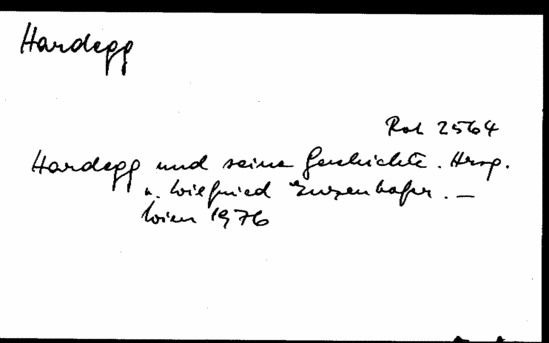 Hardegg
Rot 2564
Hardegg und seine Geschichte. Hrsg.
v. Wilfried Enzenhofer. —
Wien 1976